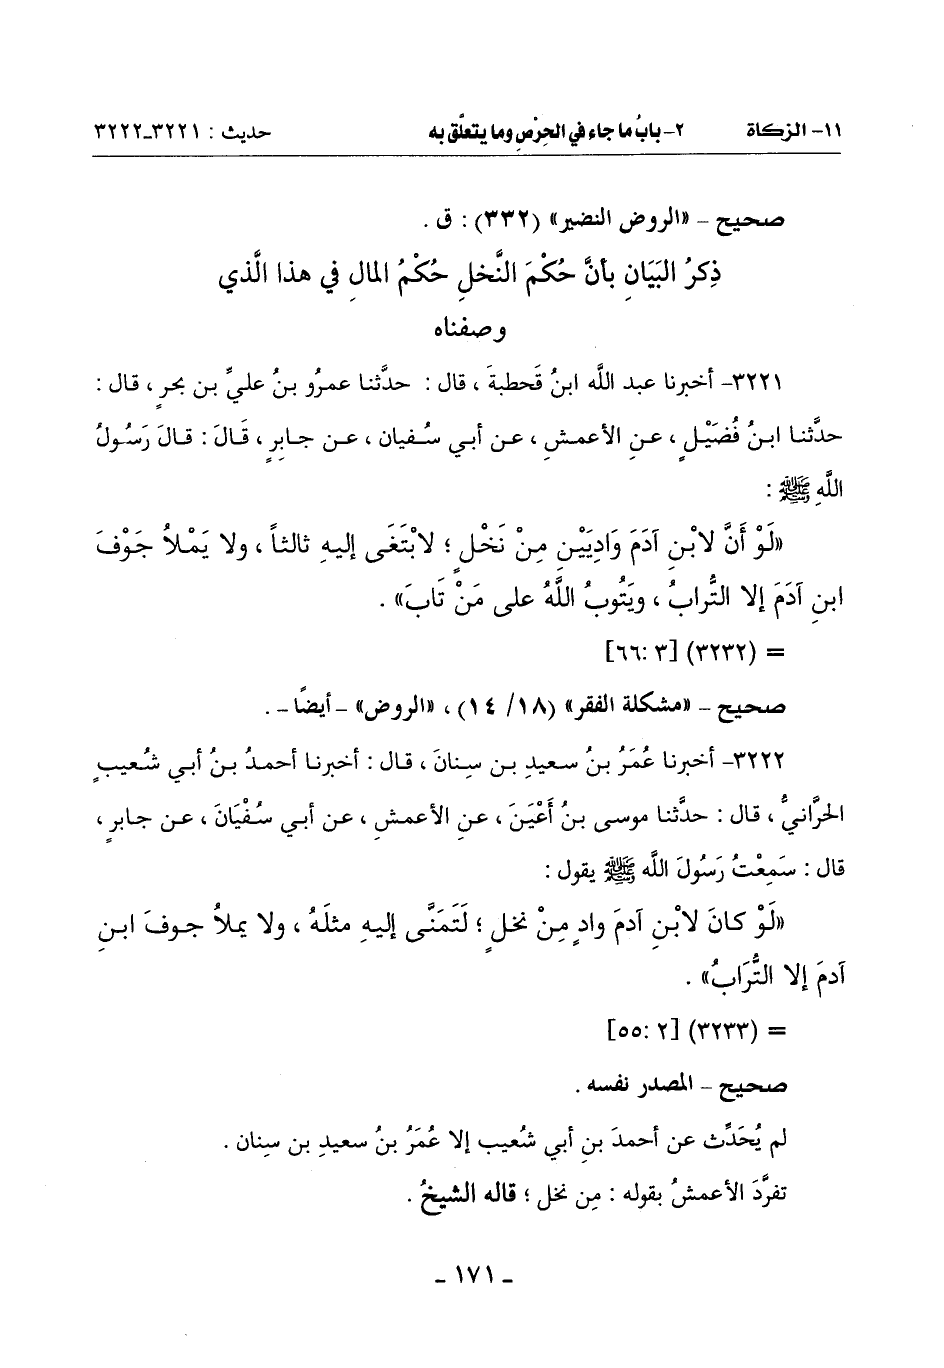 ١١- الزكاة ٢- بابُ ما جاء في الحِرْصِ وما يتعلَّق به حديث : ٣٢٢١-٣٢٢٢
صحيح - «الروض النضير» (٣٣٢) : ق .
ذِكرُ البَيَانِ بأنَّ حُكْمَ النَّخلِ حُكْمُ المالِ في هذا الَّذي
وصفناه
٣٢٢١- أخبرنا عبد الله ابنُ قَحطبةَ ، قال : حدَّثنا عمرُو بنُ عليِّ بن بحرٍ ، قال :
حدَّثنا ابنُ فُضَيْلٍ ، عنِ الأعمشِ ، عن أبي سفيان ، عن جابرٍ ، قَالَ : قالَ رَسُولُ
اللَّهِ ﷺ :
«لَوْ أَنَّ لابْنِ آدَمَ وَادِيَيْنِ مِنْ نَخْلٍ ؛ لابْتَغَى إليهِ ثالثاً ، ولا يَمْلأُ جَوْفَ
ابنِ آدَمَ إلا التُّرابُ ، ويَتُوبُ اللَّهُ على مَنْ تَابَ» .
= (٣٢٣٢) [٣ :٦٦]
صحيح - «مشكلة الفقر» (١٨/ ١٤) ، «الروض» -أيضًا- .
٣٢٢٢- أخبرنا عُمَرُ بنُ سعيدِ بن سِنانَ ، قال : أخبرنا أحمدُ بنُ أبي شُعيبٍ
الحَرَّانيُّ ، قال : حدَّثنا موسى بنُ أَعْيَنَ ، عنِ الأعمشِ ، عن أبي سُفْيَانَ ، عن جابرٍ ،
قال : سَمِعْتُ رَسُولَ اللَّه ﷺ يقول :
«لَوْ كانَ لابْنِ آدمَ وادٍ مِنْ نخلٍ ؛ لَتَمَنَّى إليهِ مثلَهُ ، ولا يملأُ جوفَ ابنِ
آدمَ إلا التُّرَابُ» .
= (٣٢٣٣) [٢ :٥٥]
صحيح - المصدر نفسه .
لم يُحَدِّث عن أحمدَ بنِ أبي شُعيب إلا عُمَرُ بنُ سعيدِ بن سِنان .
تفرَّدَ الأعمشُ بقوله : مِن نخل ؛ قاله الشيخُ .
- ١٧١ -